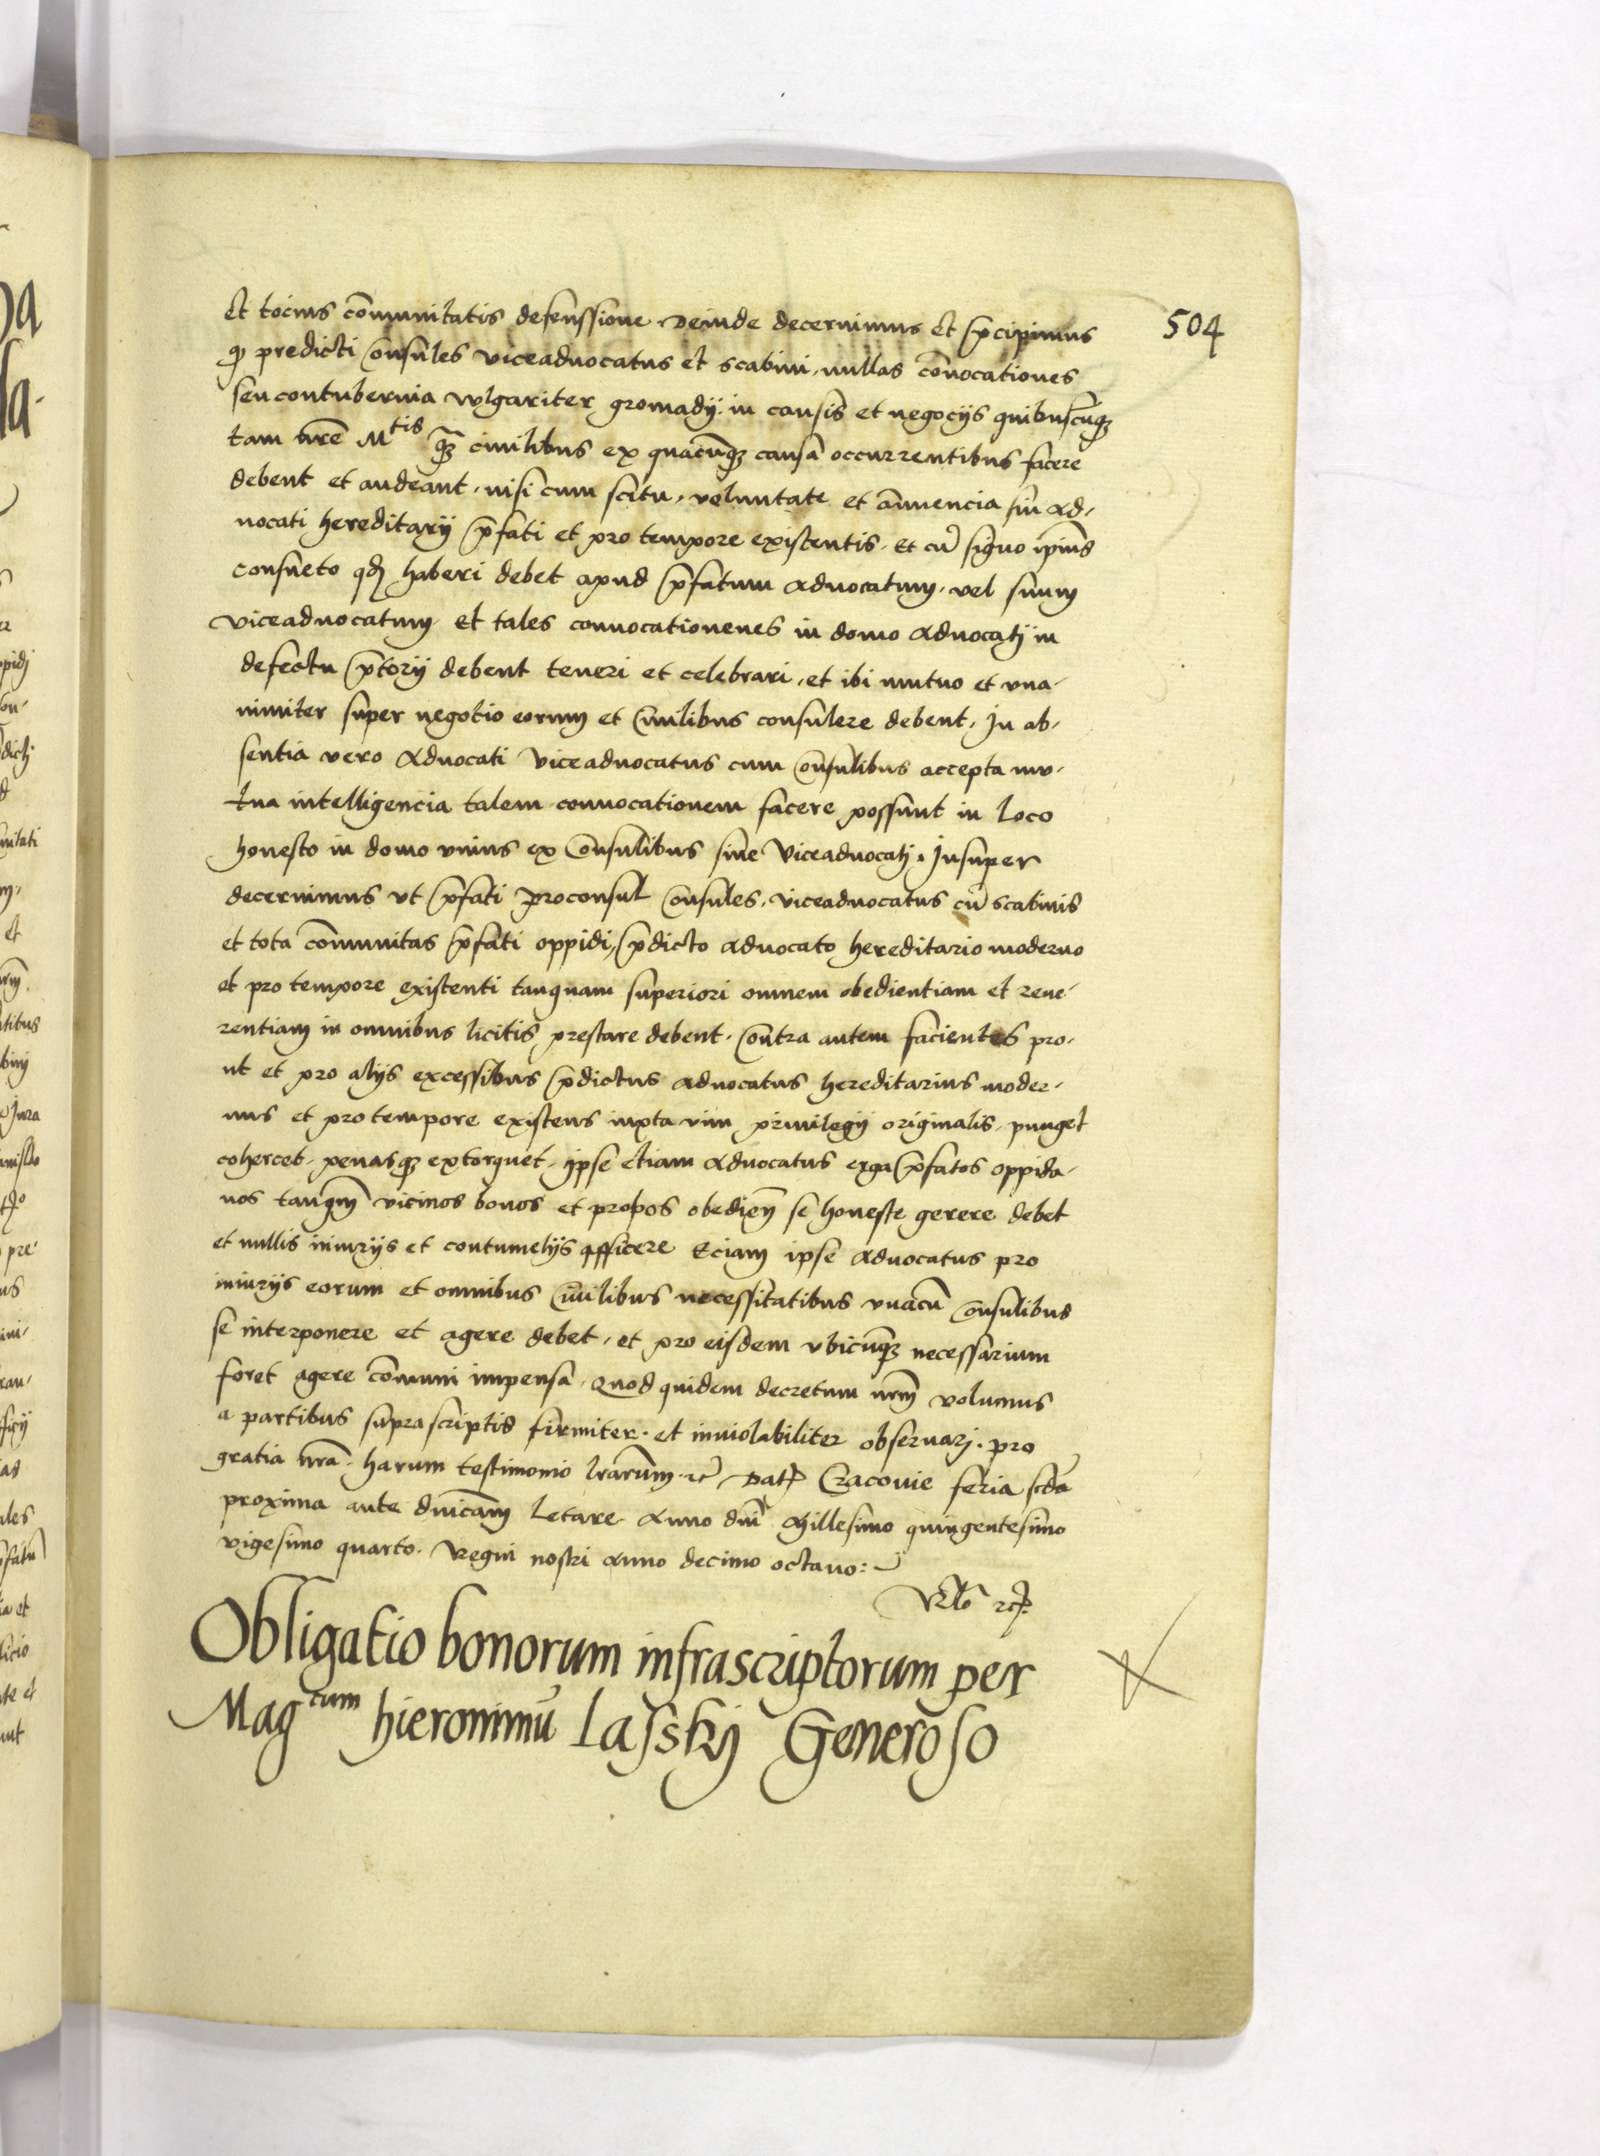 504
Et tocius cōmunitatis defenssione. Deinde decernimus Et p̄cipimus
qͦ predicti Consules viceaduocatus et scabini, nullas cōuocationes
seu contubernia vulgariter gromadÿ in causis et negocÿs quibuscūqꝫ
tam nrē Mtis qꝫ ciuilibus ex quacūqꝫ causa occurrentibus facere
debent et audeant, nisi cum scitu, voluntate et ānuencia sui ad-
uocati hereditarÿ p̄fati et pro tempore existentis. Et cū signo ipius
consueto qd haberi debet apud p̄fatum aduocatum, vel suum
viceaduocatum. Et tales conuocationenes in domo aduocatj in
defectu p̄torÿ debent teneri et celebrari, et ibi mutuo et vna-
nimiter super negotio eorum et Ciuilibus consulere debent. In ab-
sentia vero aduocati viceaduocatus cum Consulibus accepta mu-
tua intelligencia talem conuocationem facere possunt in loco
honesto in domo vnius ex Consulibus siue viceaduocatj. Insuper
decernimus vt p̄fati proconsul Consules, viceaduocatus cū scabinis
et tota cōmunitas p̄fati oppidi, p̄dicto aduocato hereditario moderno
et pro tempore existenti tanquam superiori omnem obedientiam et reue-
rentiam in omnibus licitis prestare debent. Contra autem facientes pro-
ut et pro alÿs excessibus p̄dictus aduocatus hereditarius moder-
nus et pro tempore existens iuxta vim priuilegÿ originalis, punget
cohercet, penasqꝫ extorquet. ipse etiam aduocatus erga p̄fatos oppida-
nos tanqm̄ vicinos bonos et propos obedien̄ se honeste gerere debet
et nullis iniurÿs et contumelÿs afficere Eciam ipse aduocatus pro
iniurÿs eorum et omnibus Ciuilibus necessitatibus vnacū Consulibus
se interponere et agere debet, et pro eisdem vbicūqꝫ necessarium
foret agere cōmuni impensa. Quod quidem decretum nrm̄ volumus
a partibus suprascriptis firmiter. et inuiolabiliter obseruarj. pro
gratia nrā. harum testimonio lrārum. ꝛc̄ Dat Cracouie feria scdā
proxima ante dnicam̄ letare Anno dnī Millesimo quingentesimo
vigesimo quarto. Regni nostri Anno decimo octauo:
Rlō ꝛc.
Obligatio bonorum infrascriptorum per
Magcum hieronimū Lasskÿ Generoso